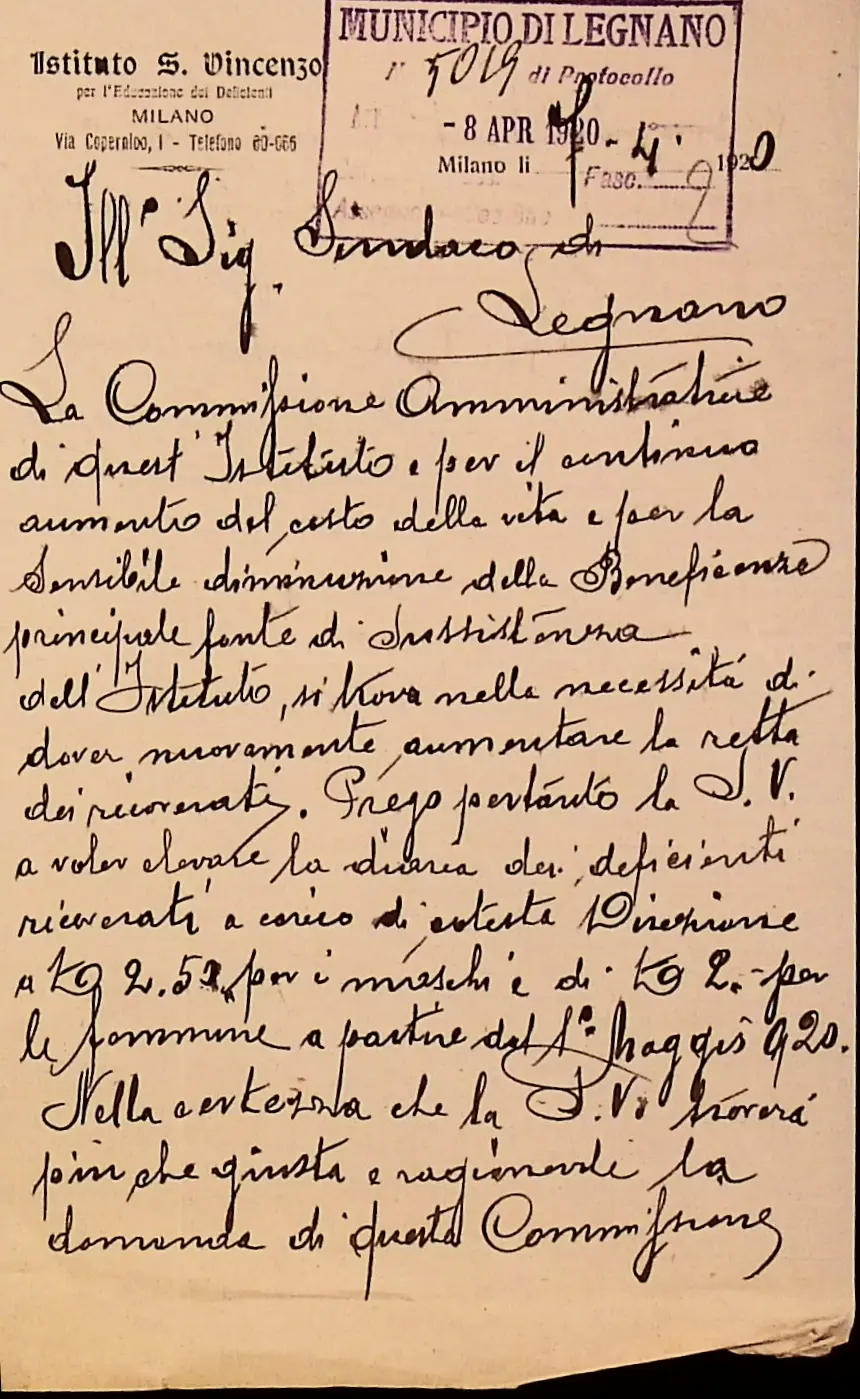 Istituto S. Vincenzo
per l'Educazione dei Deficienti
MILANO
Via Copernico, 1 - Telefono 60-666
MUNICIPIO DI LEGNANO
N° 5019 di Protocollo
- 8 APR 1920
Milano li 7 - 4 - 1920
Fasc. 9
Ill° Sig. Sindaco di
Legnano
La Commissione Amministratrice
di quest' Istituto e per il continuo
aumento del costo della vita e per la
sensibile diminuzione della Beneficenza
principale fonte di sussistenza
dell'Istituto, si trova nella necessità di
dover nuovamente aumentare la retta
dei ricoverati. Prego pertanto la S. V.
a voler elevare la diaria dei deficienti
ricoverati a carico di cotesta Direzione
a 2.50 per i maschi e di 2.- per
le femmine a partire dal 1° Maggio 920.
Nella certezza che la S. V. troverà
più che giusta e ragionevole la
domanda di questa Commissione